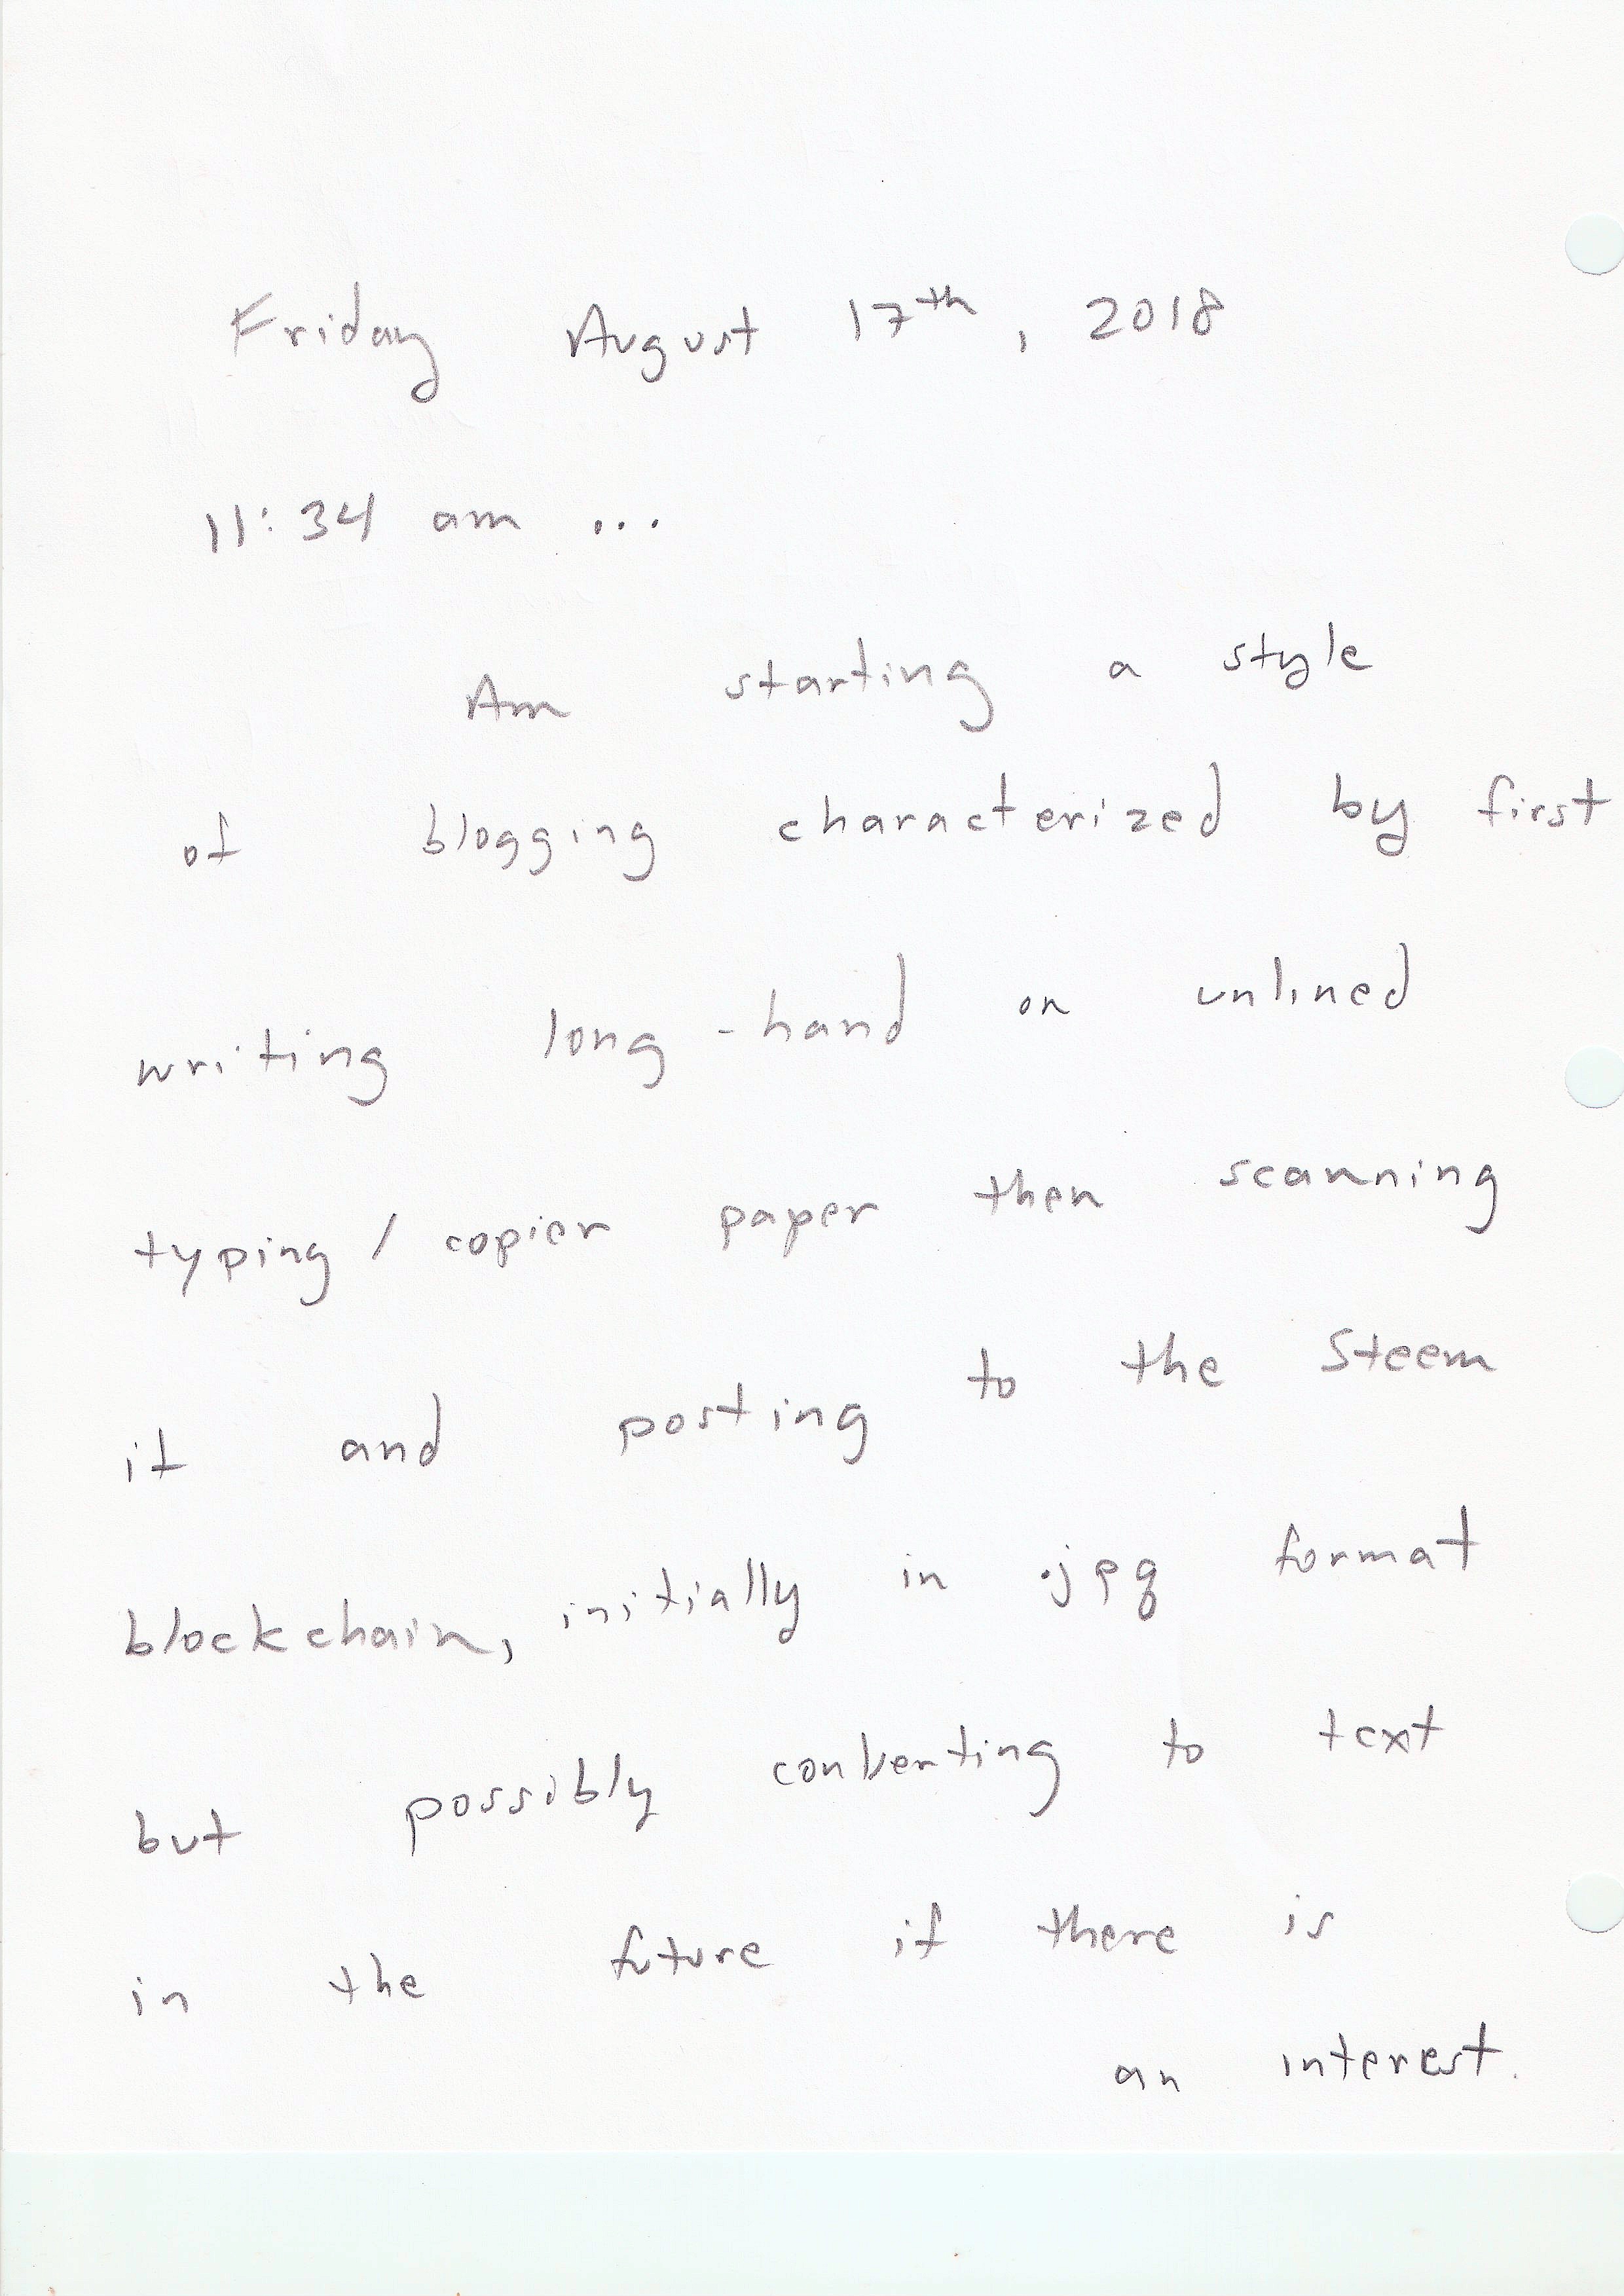 Friday August 17th, 2018
11:34 am ...
Am starting a style
of blogging characterized by first
writing long-hand on unlined
typing / copier paper then scanning
it and posting to the Steem
blockchain, initially in .jpg format
but possibly converting to text
in the future if there is
an interest.